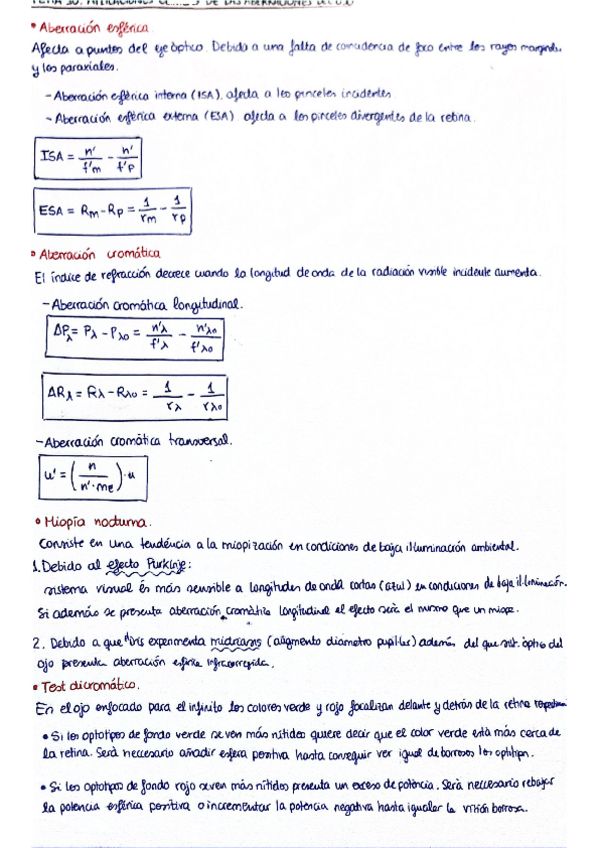 TEMA 10. APLICACIONES DE LAS ABERRACIONES DEL OJO
• Aberración esférica.
Afecta a puntos del eje óptico. Debido a una falta de coincidencia de foco entre los rayos marginales
y los paraxiales.
- Aberración esférica interna (ISA). afecta a los pinceles incidentes
- Aberración esférica externa (ESA) afecta a los pinceles divergentes de la retina.
ISA = n'/f'm - n'/f'p
ESA = Rm - Rp = 1/rm - 1/rp
• Aberración cromática
El índice de refracción decrece cuando la longitud de onda de la radiación visible incidente aumenta.
- Aberración cromática longitudinal.
ΔPλ = Pλ - Pλo = n'λ/f'λ - n'λo/f'λo
ΔRλ = Rλ - Rλo = 1/rλ - 1/rλo
- Aberración cromática transversal.
u' = (n/n'·me)·u
• Miopía nocturna.
Consiste en una tendéncia a la miopización en condiciones de baja illuminación ambiental.
1. Debido al efecto Purkinje:
sistema visual és más sensible a longitudes de onda cortas (azul) en condiciones de baja il·luminación.
Si además se presenta aberración cromática longitudinal el efecto será el mismo que un miope.
2. Debido a que iris experimenta midriasis (augmento diametro pupilar) además del que sist. óptico del
ojo presenta aberración esférica infracorregida.
• Test dicromático.
En el ojo enfocado para el infinito los colores verde y rojo focalizan delante y detrás de la retina
• Si los optotipos de fondo verde se ven más nítidos quiere decir que el color verde está más cerca de
la retina. Será neccesario añadir esfera positiva hasta conseguir ver igual de borrosos los optotipos.
• Si los optotipos de fondo rojo se ven más nítidos presenta un exceso de poténcia. Será neccesario rebajar
la potencia esférica positiva o incrementar la potencia negativa hasta igualar la visión borrosa.